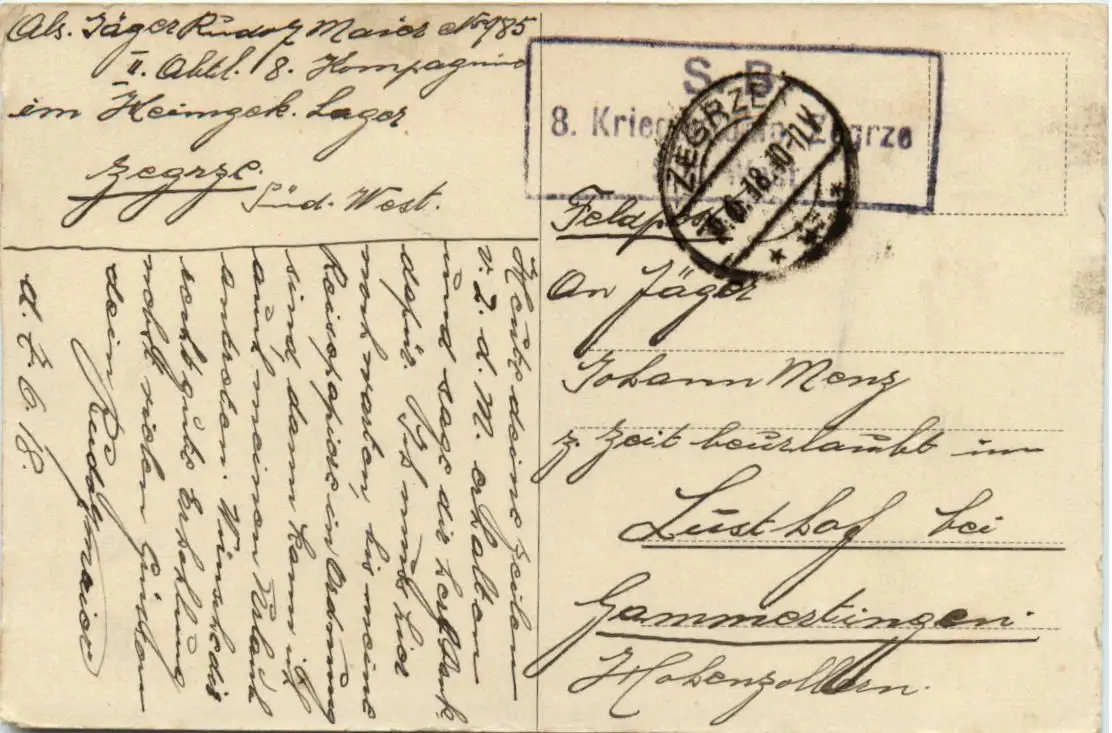 Abs. Jäger Rudolf Maier No 985
II. Abtl. 8. Kompagnie
im Heimgek. Lager
Zegrze.
Süd. West.
S. B.
8. Zegrze
ZEGRZE
.6.18.10-11.V.
Feldpost
An Jäger
Johann Menz
z. Zeit beurlaubt in
Lusthof bei
Gammertingen.
Hohenzollern.
Heute deine Zeilen
v. 2. d. M. erhalten
und sage dir herzl. Dank
dafür. Ich muß hier
noch warten, bis meine
Reisepapiere in Ordnung
sind, dann kann ich
auch meinen Urlaub
antreten. Wünsche dir
recht gute Erholung
nebst vielen Grüßen
dein
Rudolf Maier
d. 7.6.18.